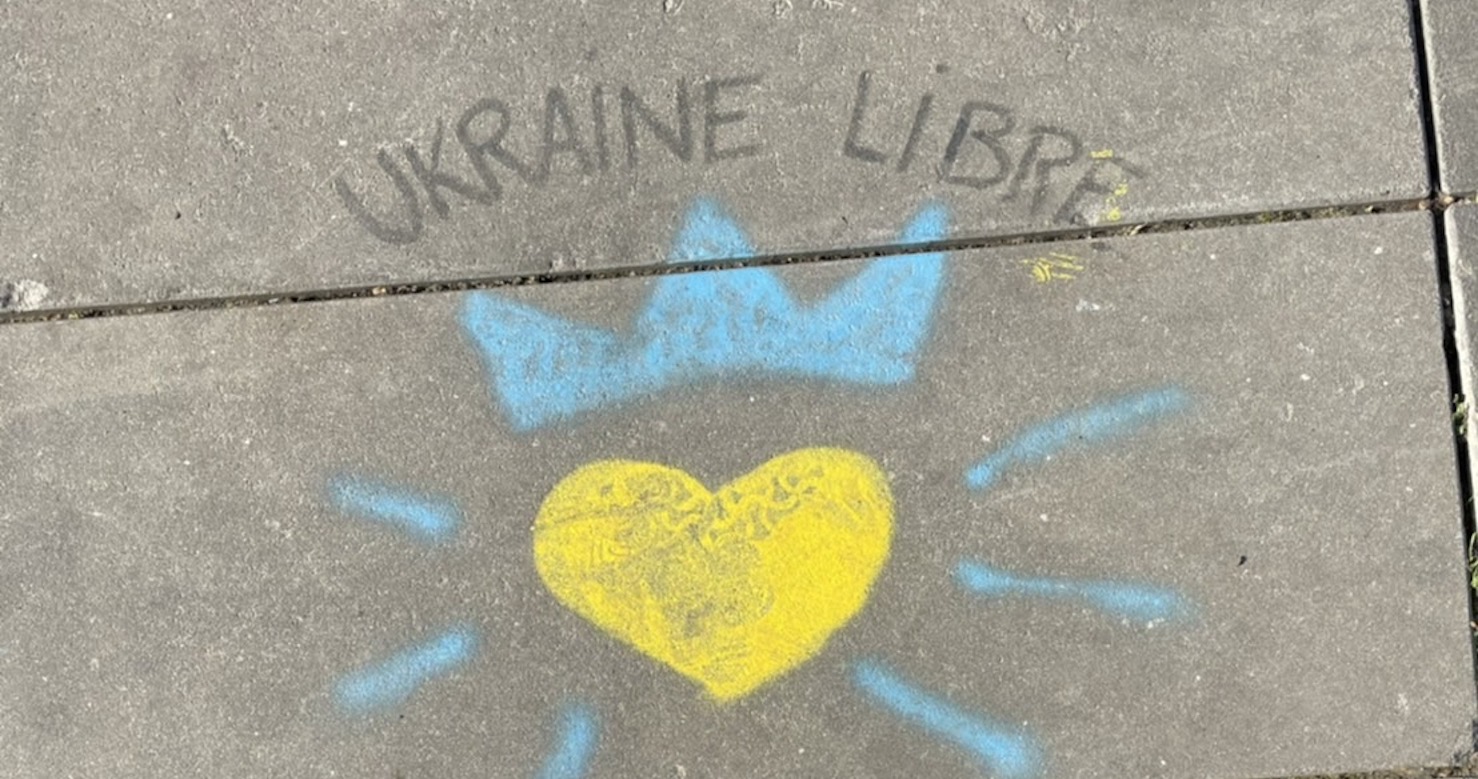 UKRAINE LiBRE